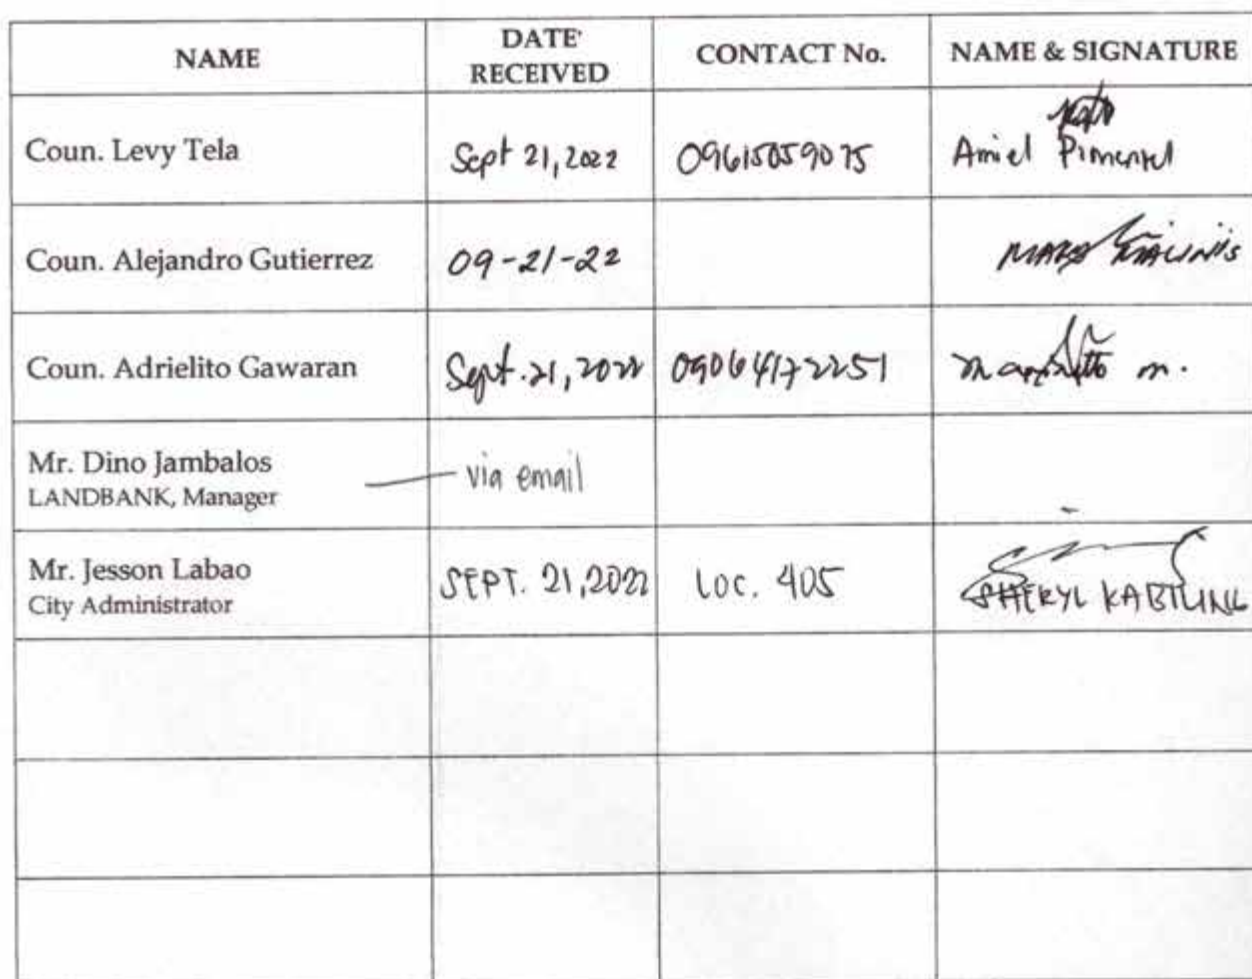 NAME
DATE RECEIVED
CONTACT No.
NAME & SIGNATURE
Coun. Levy Tela
Sept 21, 2022
09615059075
Amiel Pimentel
Coun. Alejandro Gutierrez
09-21-22
Coun. Adrielito Gawaran
Sept. 21, 2022
09064172251
m.
Mr. Dino Jambalos
LANDBANK, Manager
via email
Mr. Jesson Labao
City Administrator
SEPT. 21, 2022
LOC. 405
SHERYL KABILING